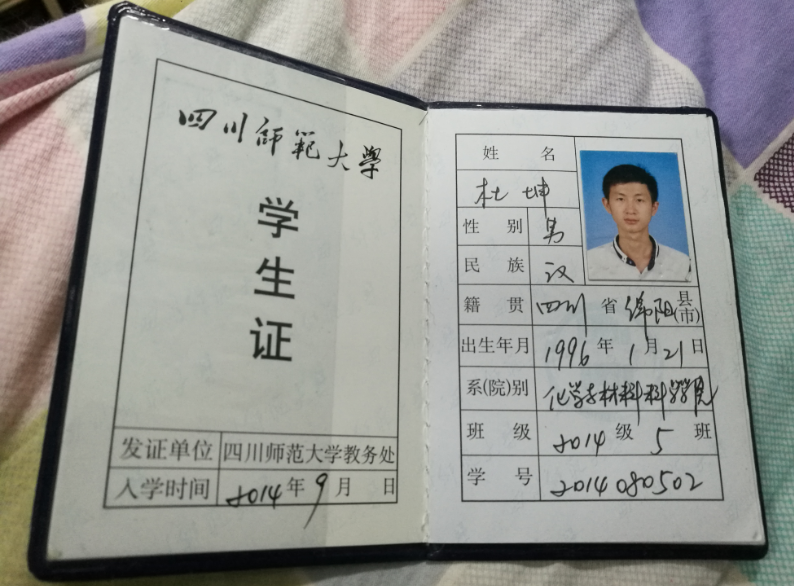 四川師範大學
学
生
证
发证单位 四川师范大学教务处
入学时间 2014年9月 日
姓 名
杜坤
性 别 男
民 族 汉
籍 贯 四川省绵阳县(市)
出生年月 1996年1月21日
系(院)别 化学与材料科学学院
班 级 2014级5班
学 号 2014080502